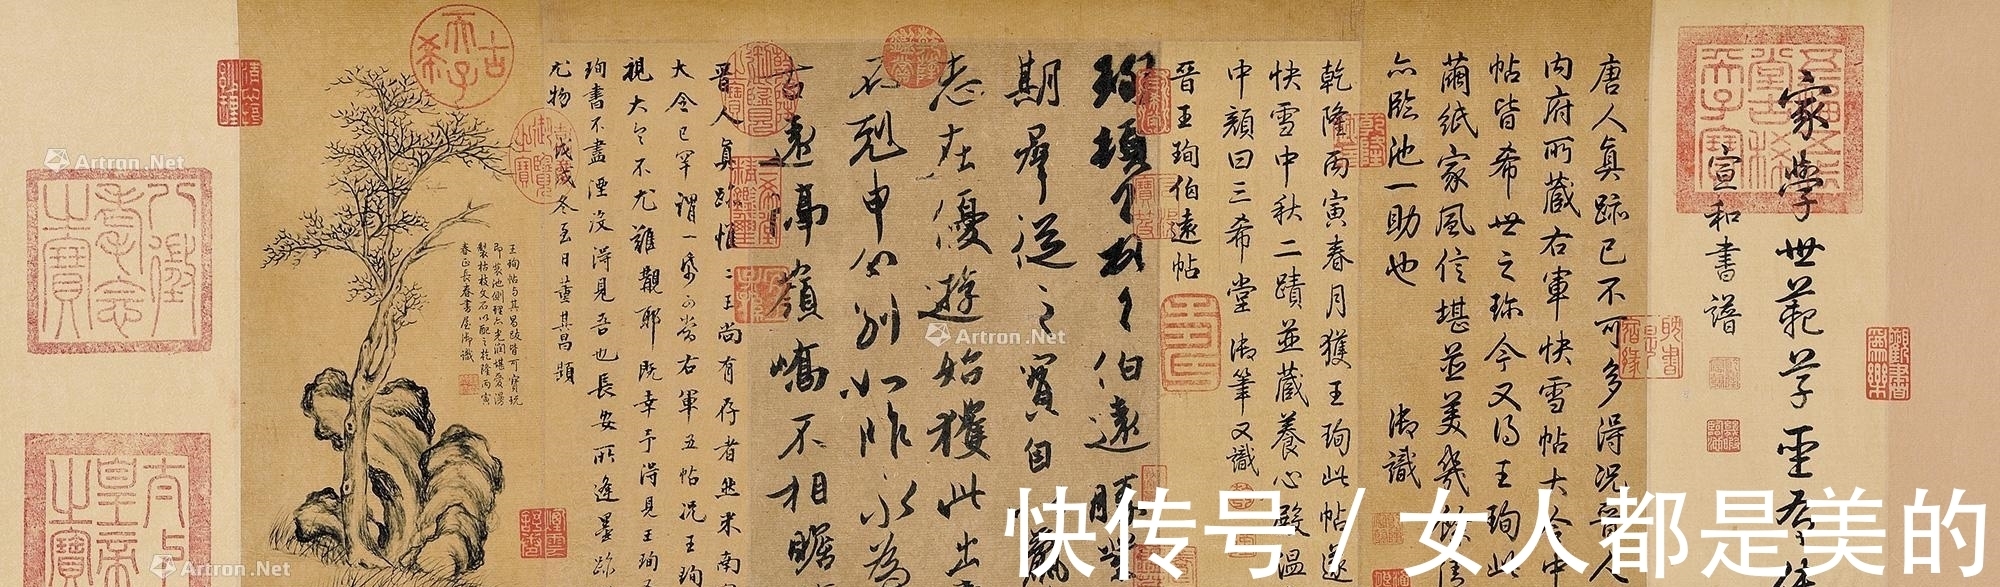 家學世範草聖有傳
宣和書譜
五福五代堂古稀天子寶
唐人真跡已不可多得況晉人
內府所藏右軍快雪帖大令中
帖皆希世之珍今又得王珣此
繭紙家風信堪並美幾餘清
亦臨池一助也 御識
乾隆丙寅春月獲王珣此帖遂
快雪中秋二蹟並藏養心殿溫
中顏曰三希堂 御筆又識
晉王珣伯遠帖
珣頓首頓首伯遠勝業
期群從之寶自
志在優遊始獲此出
不剋申分別如昨永為
古遠隔嶺嶠不相瞻
晉人真跡惟二王尚有存者然米南
大令已罕謂一紙可當右軍五帖況王珣
視大令不尤難覯耶既幸予得見王珣
珣書不盡湮沒得見吾也長安所逢墨跡
尤物 戊戌冬至日董其昌題
王珣帖與其昌跋皆可寶玩
即裝池側理亦光潤堪愛漫
製枯枝文石以配之乾隆丙寅
春正長春書屋御識
古希天子
八徵耄念之寶
太上皇帝之寶
Artron.Net
Artron.Net
Artron.Net
Artron.Net
Artron.Net
快传号 / 女人都是美的